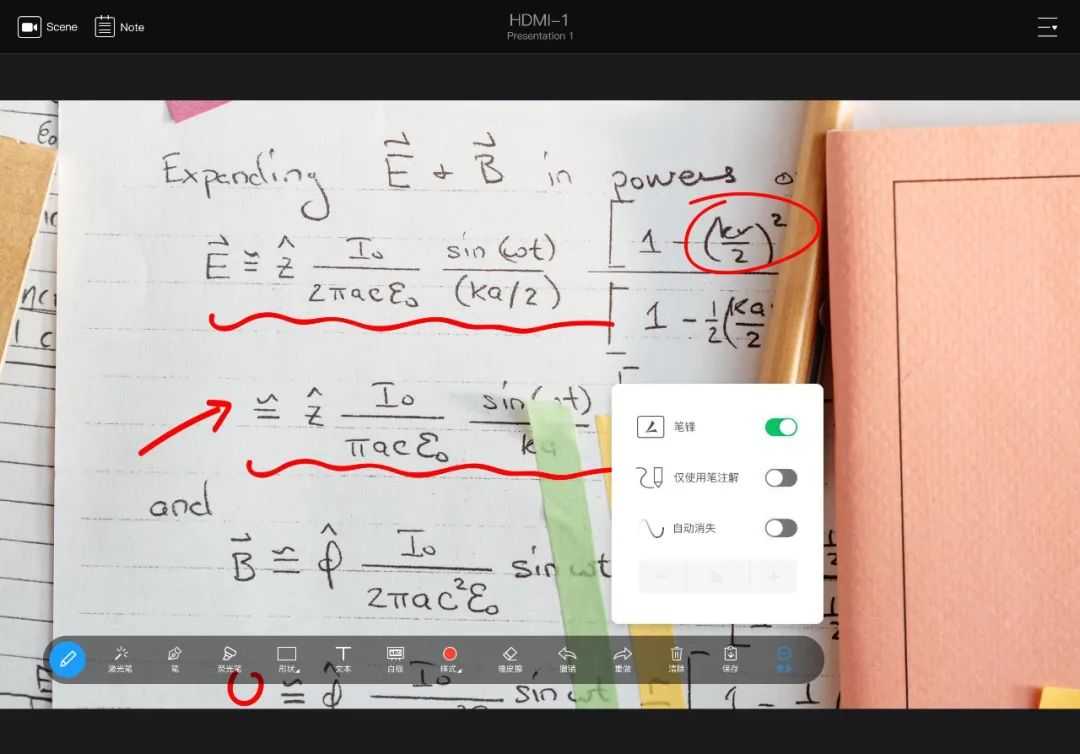 Scene Note HDMI-1
Presentation 1
Expanding E⃗ + B⃗ in powers o
E⃗ ≅ ẑ I₀/2πacε₀ sin(ωt)/(ka/2) [1 - (kr/2)²
[1 - 1/2(ka/2
≅ ẑ I₀/πacε₀ sin(ωt)/ka
and
B⃗ ≅ φ̂ I₀/2πac²ε₀ sin ωt
≅ φ̂ I₀ sin ωt
笔锋
仅使用笔注解
自动消失
− 3s +
激光笔 笔 荧光笔 形状 文本 白板 样式 橡皮擦 撤销 重做 清除 保存 更多